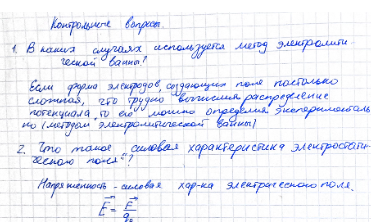 Контрольные вопросы.
1. В каких случаях используется метод электролити-
ческой ванны?
Если форма электродов, создающих поле настолько
сложная, что трудно вычислить распределение
потенциала, то его можно определить эксперименталь-
но (методом электролитической ванны)
2. Что такое "силовая характеристика электростати-
ческого поля"?
Напряжённость - силовая хар-ка электрического поля.
E = F